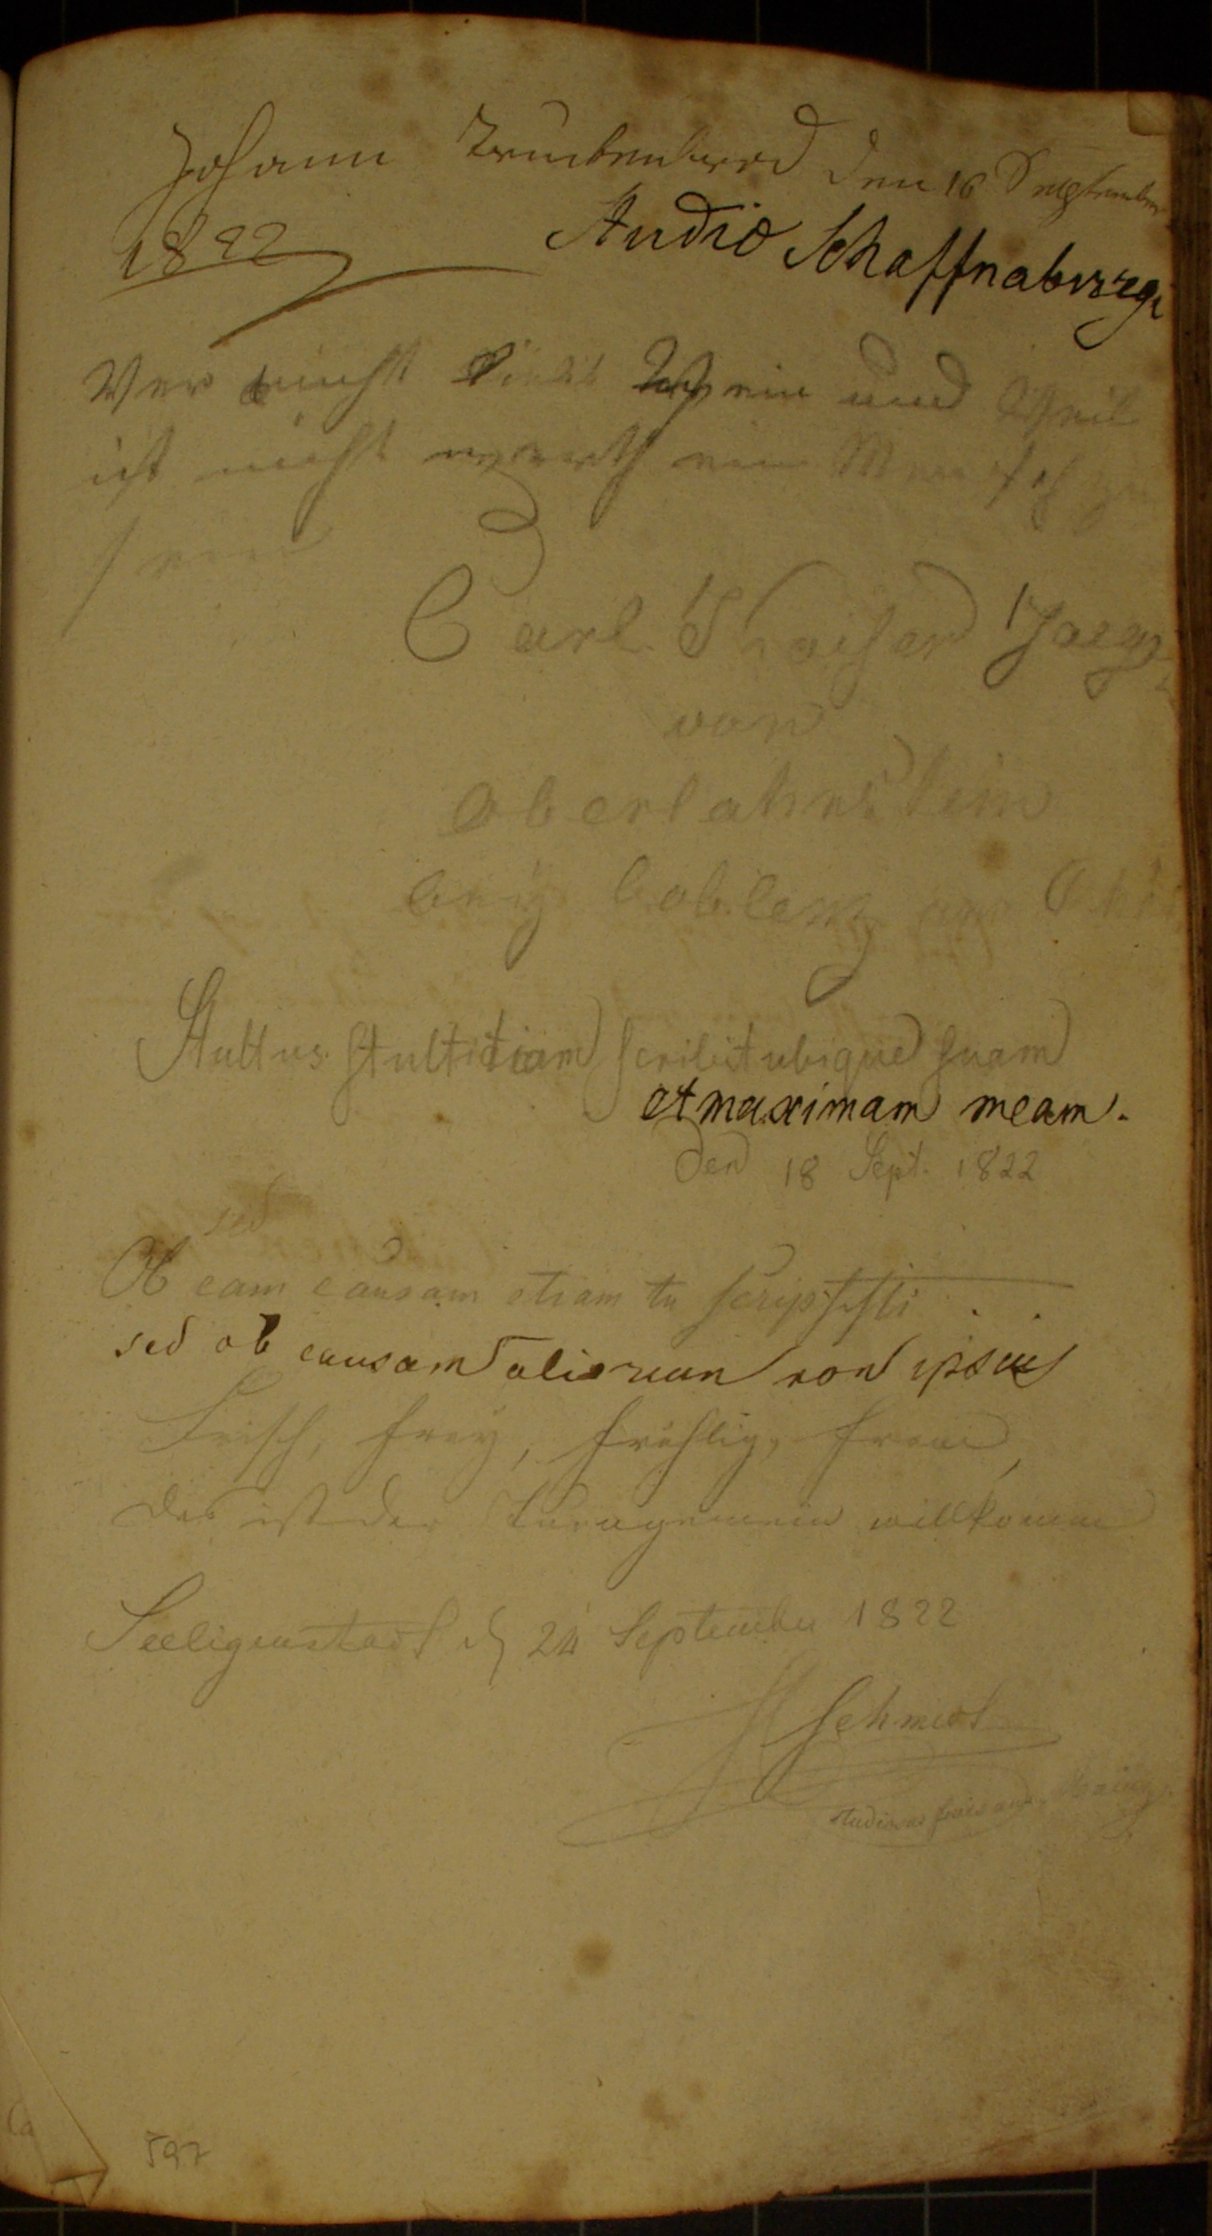 Johann den 16 September
1822 Studio Schaffnaburgi
Wer nicht liebt Wein und Weib
ist nicht werth ein Mensch zu
sein
Carl Kaiser
von
Oberlahnstein
bey Coblenz am
Stultus stultitiam scribit ubique suam
et maximam meam.
den 18 Sept. 1822
sed
Ob eam causam etiam tu scripsisti
sed ob causam aliorum non ipsius
Frisch, frey, fröhlig, from
Das ist der willkomm
Seeligenstadt d 24 September 1822
Schmidt
597